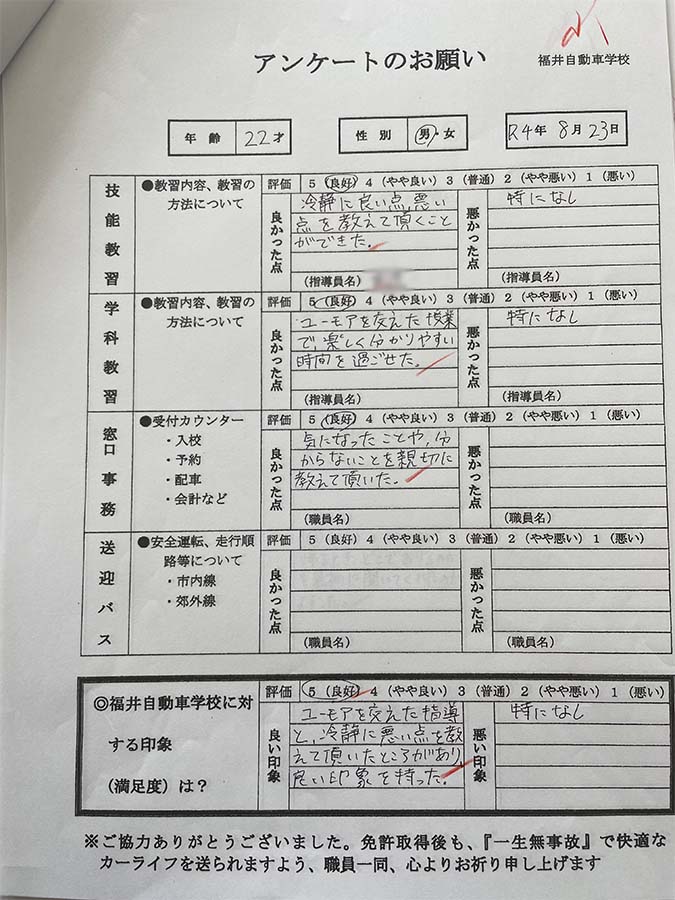 アンケートのお願い
福井自動車学校
年齢 22才
性別 男・女
R4年 8月23日
技能教習
●教習内容、教習の
方法について
評価 5 (良好) 4 (やや良い) 3 (普通) 2 (やや悪い) 1 (悪い)
良かった点
冷静に良い点,悪い
点を教えて頂くこと
ができた。
(指導員名)
悪かった点
特になし
(指導員名)
学科教習
●教習内容、教習の
方法について
評価 5 (良好) 4 (やや良い) 3 (普通) 2 (やや悪い) 1 (悪い)
良かった点
ユーモアを交えた授業
で,楽しく分かりやすい
時間を過ごせた。
(指導員名)
悪かった点
特になし
(指導員名)
窓口事務
●受付カウンター
・入校
・予約
・配車
・会計など
評価 5 (良好) 4 (やや良い) 3 (普通) 2 (やや悪い) 1 (悪い)
良かった点
気になったことや,分
からないことを親切に
教えて頂いた。
(職員名)
悪かった点
(職員名)
送迎バス
●安全運転、走行順
路等について
・市内線
・郊外線
評価 5 (良好) 4 (やや良い) 3 (普通) 2 (やや悪い) 1 (悪い)
良かった点
(職員名)
悪かった点
(職員名)
◎福井自動車学校に対
する印象
(満足度)は？
評価 5 (良好) 4 (やや良い) 3 (普通) 2 (やや悪い) 1 (悪い)
良い印象
ユーモアを交えた指導
と,冷静に悪い点を教
えて頂いたところがあり,
良い印象を持った。
悪い印象
特になし
※ご協力ありがとうございました。免許取得後も、『一生無事故』で快適な
カーライフを送られますよう、職員一同、心よりお祈り申し上げます